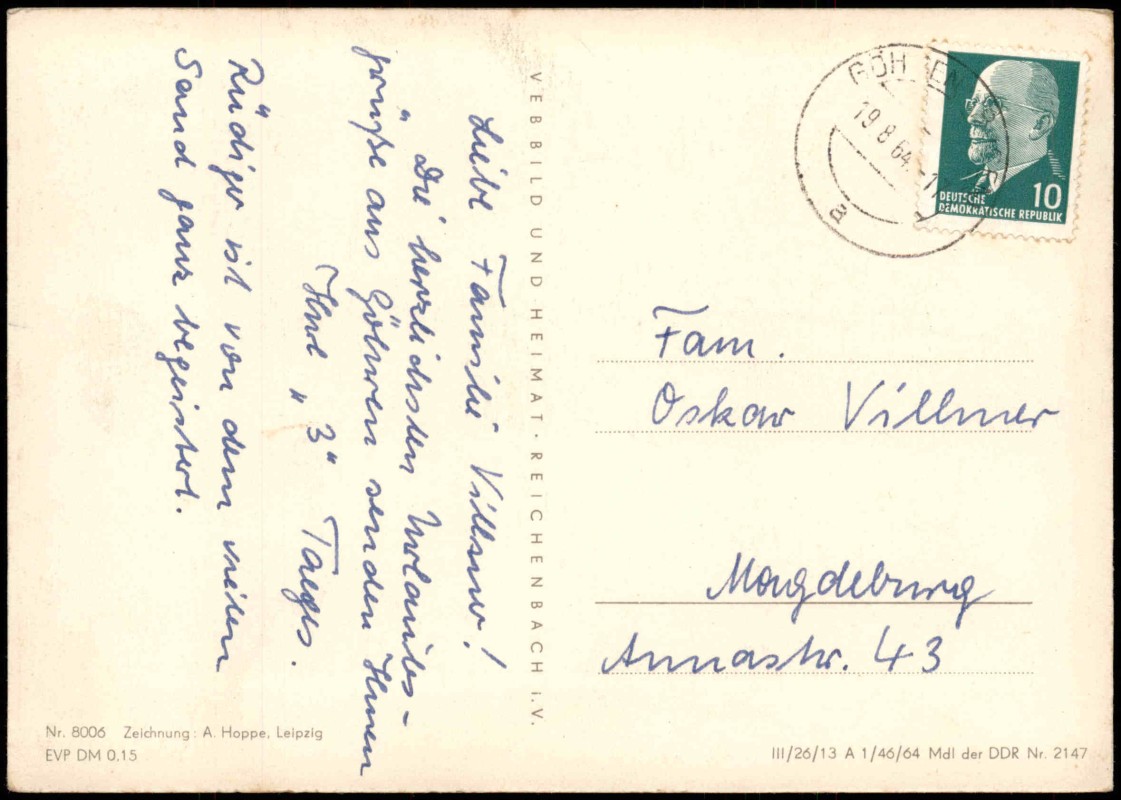 Liebe Familie Villmer!
Die herzlichsten Urlaubs-
grüße aus Göhren senden Ihnen
Ihre „3" Taeges.
Rüdiger ist von dem vielen
Sand ganz begeistert.
VEB BILD UND HEIMAT · REICHENBACH i.V.
19.8.64
a
10
DEUTSCHE
DEMOKRATISCHE REPUBLIK
Fam.
Oskar Villmer
Magdeburg
Annastr. 43
Nr. 8006 Zeichnung: A. Hoppe, Leipzig
EVP DM 0,15
III/26/13 A 1/46/64 MdI der DDR Nr. 2147